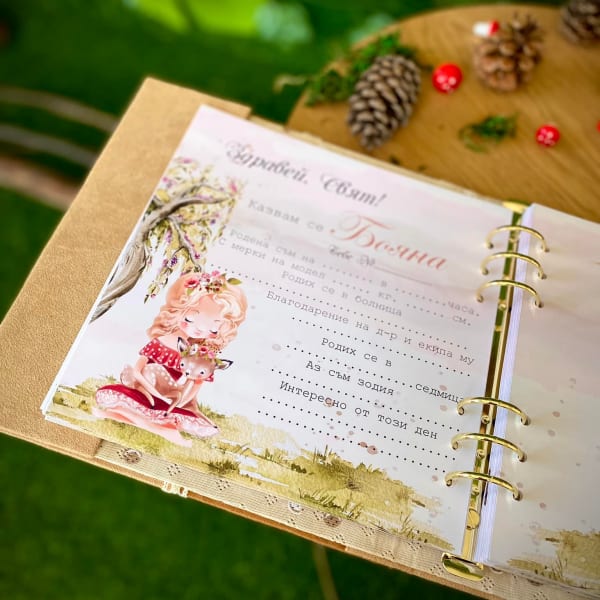 Здравей, Свят!
Казвам се Бояна
Бебе №
Родена съм на ........ в ........ часа.
с мерки на модел ........ кг. ........ см.
Родих се в болница
Благодарение на д-р и екипа му
Родих се в ..... седмица
Аз съм зодия
Интересно от този ден